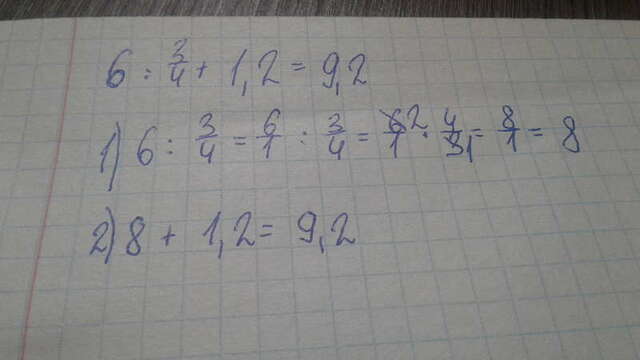 6 : 3/4 + 1,2 = 9,2
1) 6 : 3/4 = 6/1 : 3/4 = 6 2/1 · 4/3 1 = 8/1 = 8
2) 8 + 1,2 = 9,2